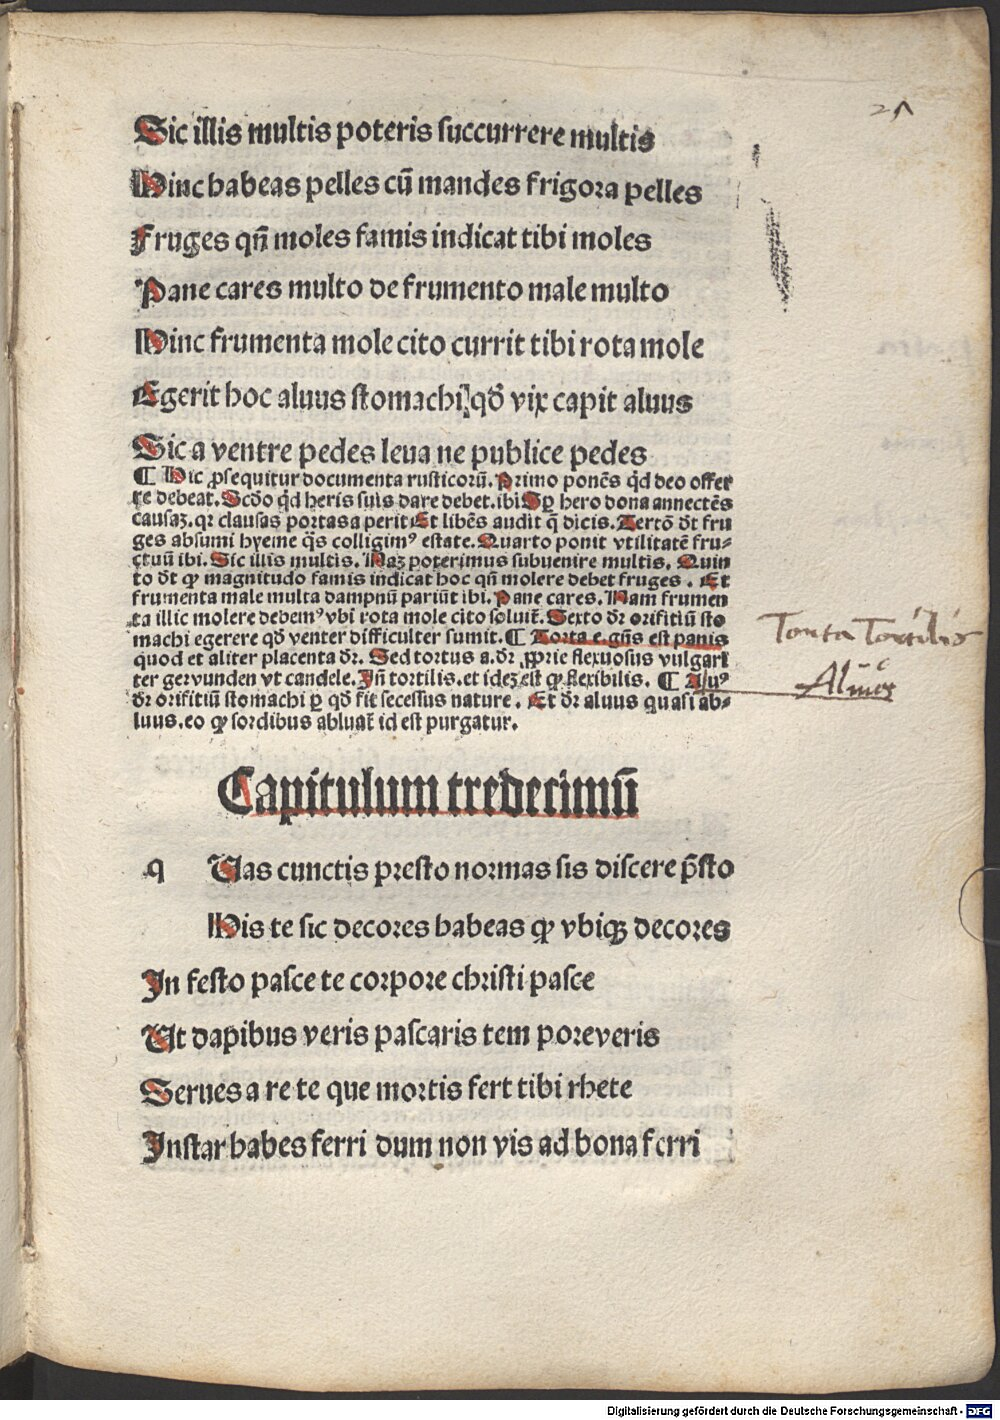 Sic illis multis poteris succurrere multis
Hinc habeas pelles cū mandes frigora pelles
Fruges qn̄ moles famis indicat tibi moles
Pane cares multo de frumento male multo
Hinc frumenta mole cito currit tibi rota mole
Egerit hoc aluus stomachi qd̄ vix capit aluus
Sic a ventre pedes leua ne publice pedes
¶ Hic ꝓsequitur documenta rusticorū. Primo ponēs qd̄ deo offer
re debeat. Scd̄o qd̄ heris suis dare debet. ibi Sꝑ hero dona annectēs
causaꝫ. qꝛ clausas portas aperit Et libēs audit q̄ dicis. Tertō dt̄ fru
ges absumi hyeme q̄s colligimꝰ estate. Quarto ponit vtilitatē fru-
ctuū ibi. Sic illis multis. Naꝫ poterimus subuenire multis. Quin
to dt̄ ꝙ magnitudo famis indicat hoc qn̄ molere debet fruges. Et
frumenta male multa dampnū pariūt ibi. Pane cares. Nam frumen
ta illic molere debemꝰ vbi rota mole cito soluit̄. Sexto dr̄ orifitiū sto
machi egerere qd̄ venter difficulter sumit. ¶ Torta e. gn̄s est panis
quod et aliter placenta dr̄. Sed tortus a. dr̄ ꝓprie flexuosus vulgari
ter gervunden vt candele. Jn̄ tortilis. et ideꝫ est ꝙ flexibilis. ¶ Aluꝰ
dr̄ orifitiū stomachi ꝑ qd̄ fit secessus nature. Et dr̄ aluus quasi ab-
luus. eo ꝙ sordibus abluat̄ id est purgatur.
Torta Tortilis
Aluus
Capitulum tredecimū
q Has cunctis presto normas sis discere p̄sto
His te sic decores habeas ꝙ vbiqꝫ decores
In festo pasce te corpore christi pasce
Ut dapibus veris pascaris tem poreveris
Serues a re te que mortis fert tibi rhete
Instar habes ferri dum non vis ad bona ferri
Digitalisierung gefördert durch die Deutsche Forschungsgemeinschaft - DFG